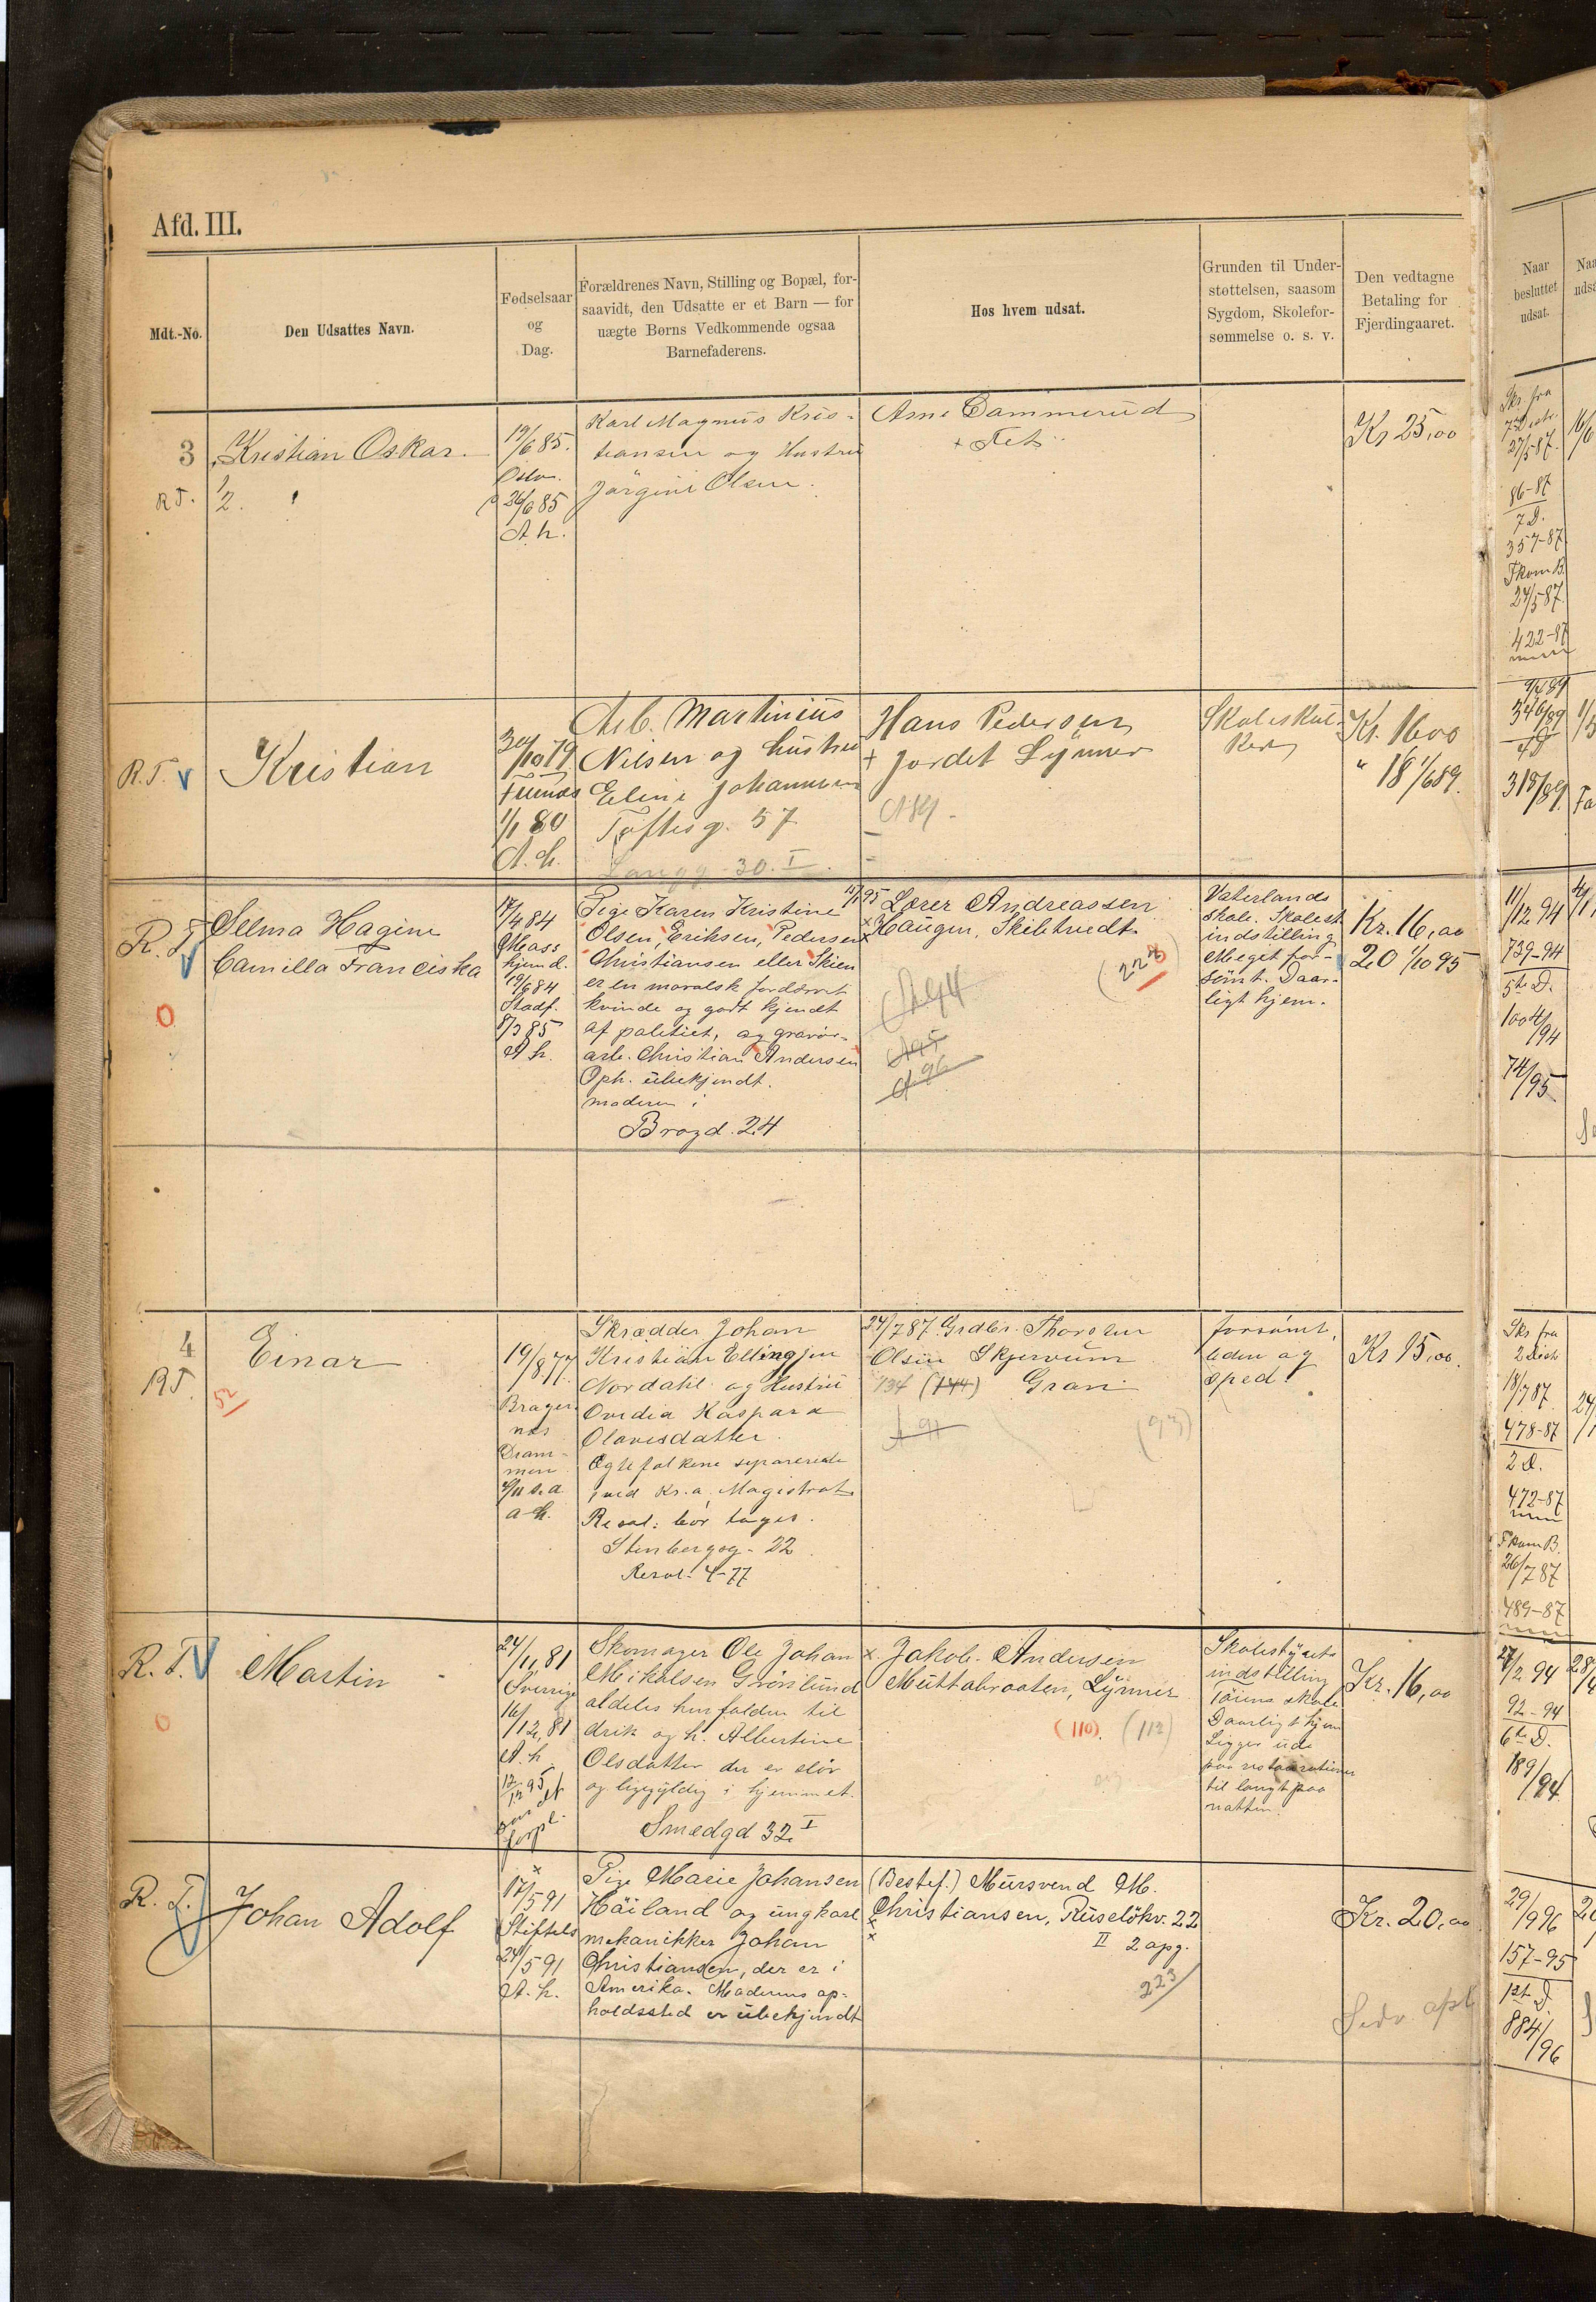 Afd. III.
Mdt.-No.
Den Udsattes Navn.
Fødselsaar
og
Dag.
Forældrenes Navn, Stilling og Bopæl, for-
saavidt, den Udsatte er et Barn — for
uægte Børns Vedkommende ogsaa
Barnefaderens.
Hos hvem udsat.
Grunden til Under-
støttelsen, saasom
Sygdom, Skolefor-
sømmelse o. s. v.
Den vedtagne
Betaling for
Fjerdingaaret.
Naar
besluttet
udsat.
3
R.T.
Kristian Oskar
2.
19/6 85.
Oslo.
26/6 85
A. h.
Karl Magnus Kris-
tiansen og Hustru
Jørgine Olsen.
Arne Dammerud
+ Fet
Kr 25,00
Skr. fra
27/5-87.
86-87
7 D.
357-87
Fkom B.
24/5 87
422-87
R.T. v
Kristian
30/10 79
1/1 80
A. h.
Arb. Martinius
Nilsen og hustru
Eline Johannesen
Toftesg. 57
Langg. 30. I
Hans Pedersen
+ Jordet Lynner
A 89
Kr. 16 00
" 18 1/6 89.
9/4 89
346/89
4 D
315/89
R. T. v
0
Selma Hagine
Camilla Franciska
17/4 84
19/6 84
Stadf.
8/3 85
A h.
Pige Karen Kristine
Olsen, Eriksen, Pedersen
Christiansen eller Skien
er en moralsk fordærvet
kvinde og godt kjendt
af politiet, og gravør-
arb. Christian Andersen
Oph. ubekjendt.
moderen i
Brogd. 24
Lærer Andreassen
x Haugen, Skibtvedt
(227)
A 94
A 95
A 96
Vaterlands
skole. Skolest
indstilling
Meget for-
sømt. Daar-
ligt hjem.
Kr. 16,00
20 1/10 95
11/12 94
739-94
5te D.
1004/94
74/95
4
R.T.
Einar
52
19/8 77
Brager-
næs
Dram-
men
a h.
Skrædder Johan
Kristian Ellingsen
Nordahl og Hustru
Ovidia Kaspara
Olavesdatter.
Ægtefolkene separerede
ved Kr.a Magistrat
Resol: bør tages.
Stenbergg. 22
Resol. 4-77
24/7 87. Grdbr. Thorsten
Olsen Skjervum
134 (144) Gran
A 91
(93)
forsømt,
liden og
sped.
Kr 15,00.
Skr fra
2 Dist
18/7 87
478-87
2 D.
472-87
Fkom B.
26/7 87
489-87
R. T. V
0
Martin
24/11 81
Sverrige
16/12 81
A. h
Skomager Ole Johan
Mikalsen Grønlund
aldeles henfalden til
drik og h. Albertine
Olsdatter der er sløv
og ligegyldig i hjemmet.
Smedgd 32 I
x. Jakob Andersen
Muttabraaten, Lynner
(110). (112)
Skolestyrets
indstilling
Tøiens skole
Daarligt hjem
Ligger ude
paa restaurationer
til langt paa
natten.
Kr. 16,00
27/2 94
92-94
6te D.
189/94
R. T.
Johan Adolf
x
17/5 91
Stiftels
24/5 91
A. h.
Pige Marie Johansen
Høiland og ungkarl
mekanikker Johan
Christiansen, der er i
Amerika. Moderens op-
holdssted er ubekjendt
(Bestef.) Mursvend M.
Christiansen, Ruseløkv. 22
II 2 opg.
223
Kr. 20,00
29/9 96
157-95
1st D.
884/96